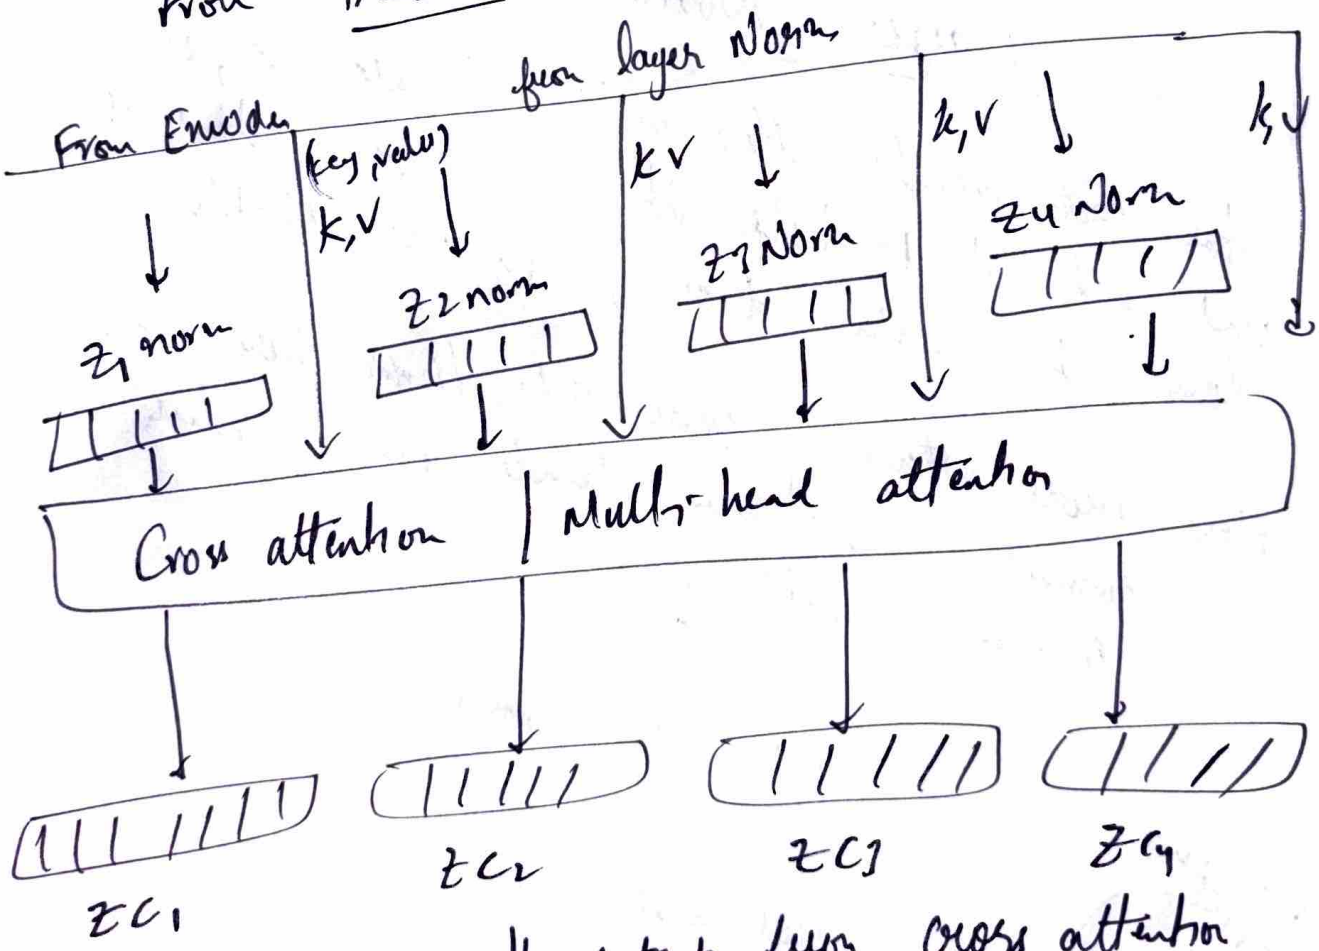 from
from layer Norm
From Encoder
(key, value)
k,v
k v
k,v
k,v
Z1 norm
Z2 norm
Z3 Norm
Z4 Norm
Cross attention | Multi-head attention
ZC1
ZC2
ZC3
ZC4
from cross attention